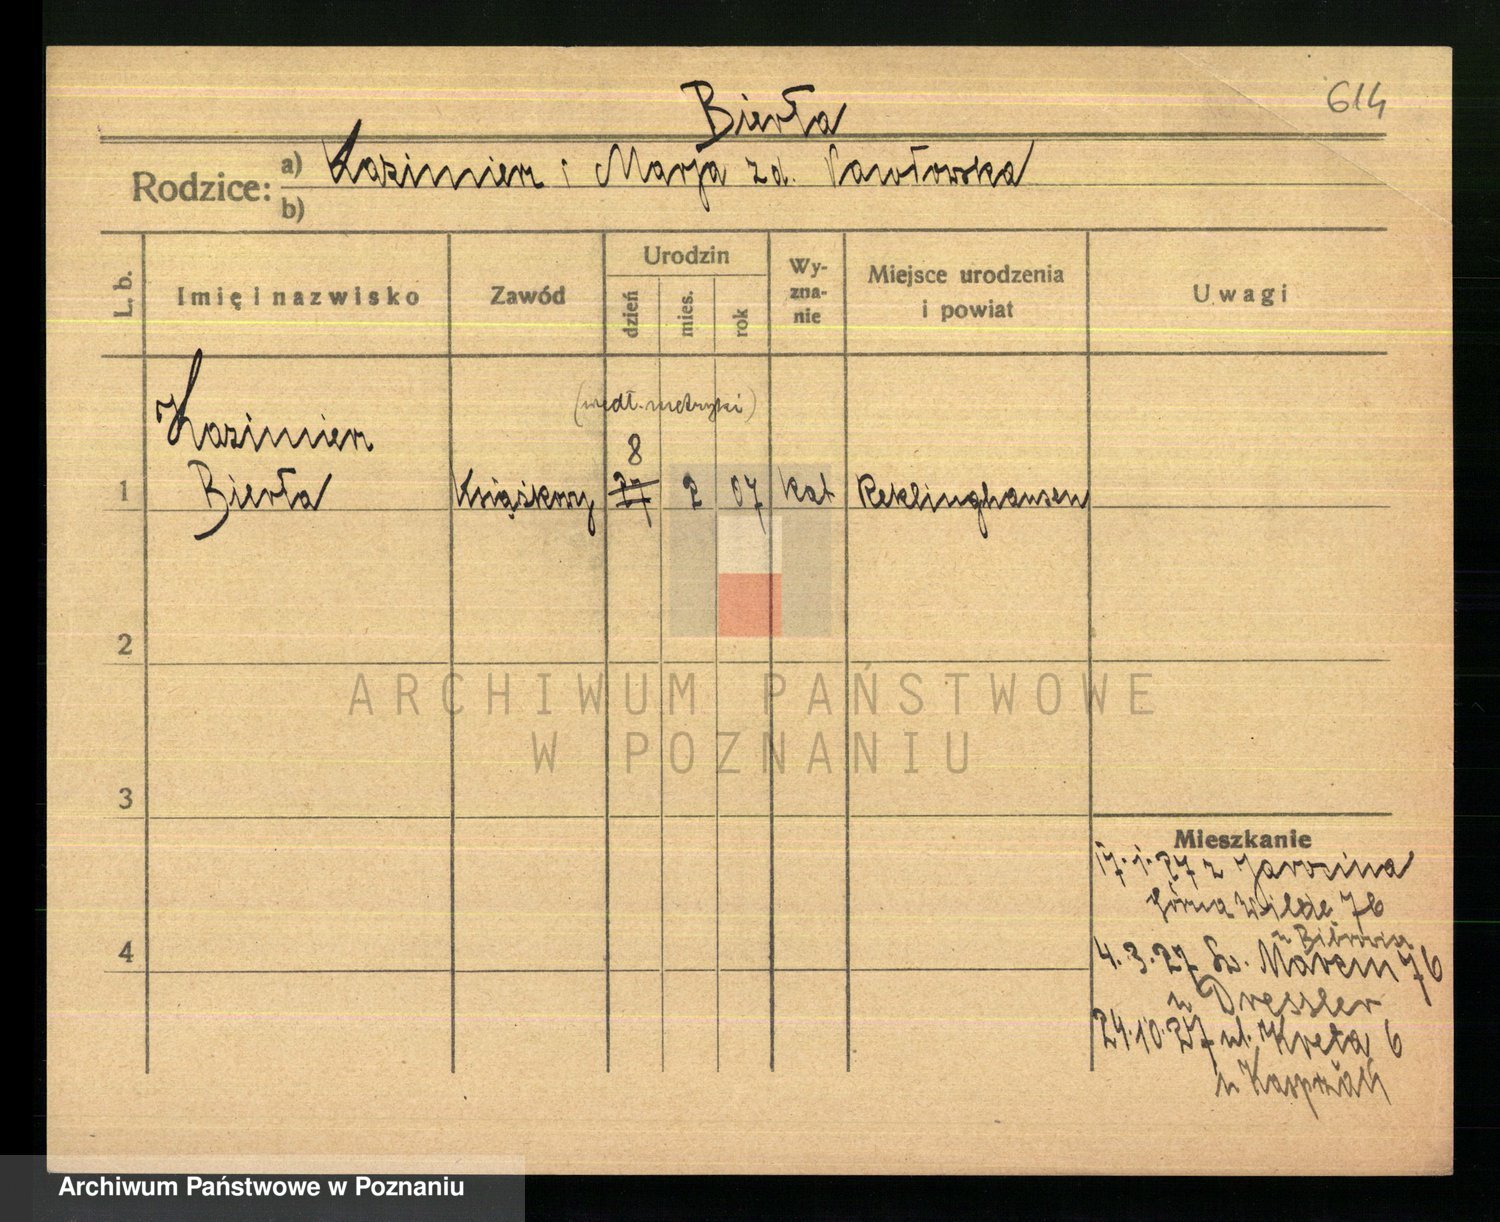 614
Bierła
Rodzice: a) Kazimierz i Marja zd. Pawłowska
b)
L. b.
Imię i nazwisko
Zawód
Urodzin
dzień
mies.
rok
Wy-
zna-
nie
Miejsce urodzenia
i powiat
Uwagi
(wedł. metryki)
Kazimierz
8
1 Bierła Książkowy 27 2 07 kat Reklinghausen
2
ARCHIWUM PAŃSTWOWE
W POZNANIU
3
Mieszkanie
17.1.27 z Jarocina
Górna Wilda 76
4
4.3.27 Św. Marcin 76
u Dressler
24.10.27 ul. Kręta 6
u Kasprzak
Archiwum Państwowe w Poznaniu